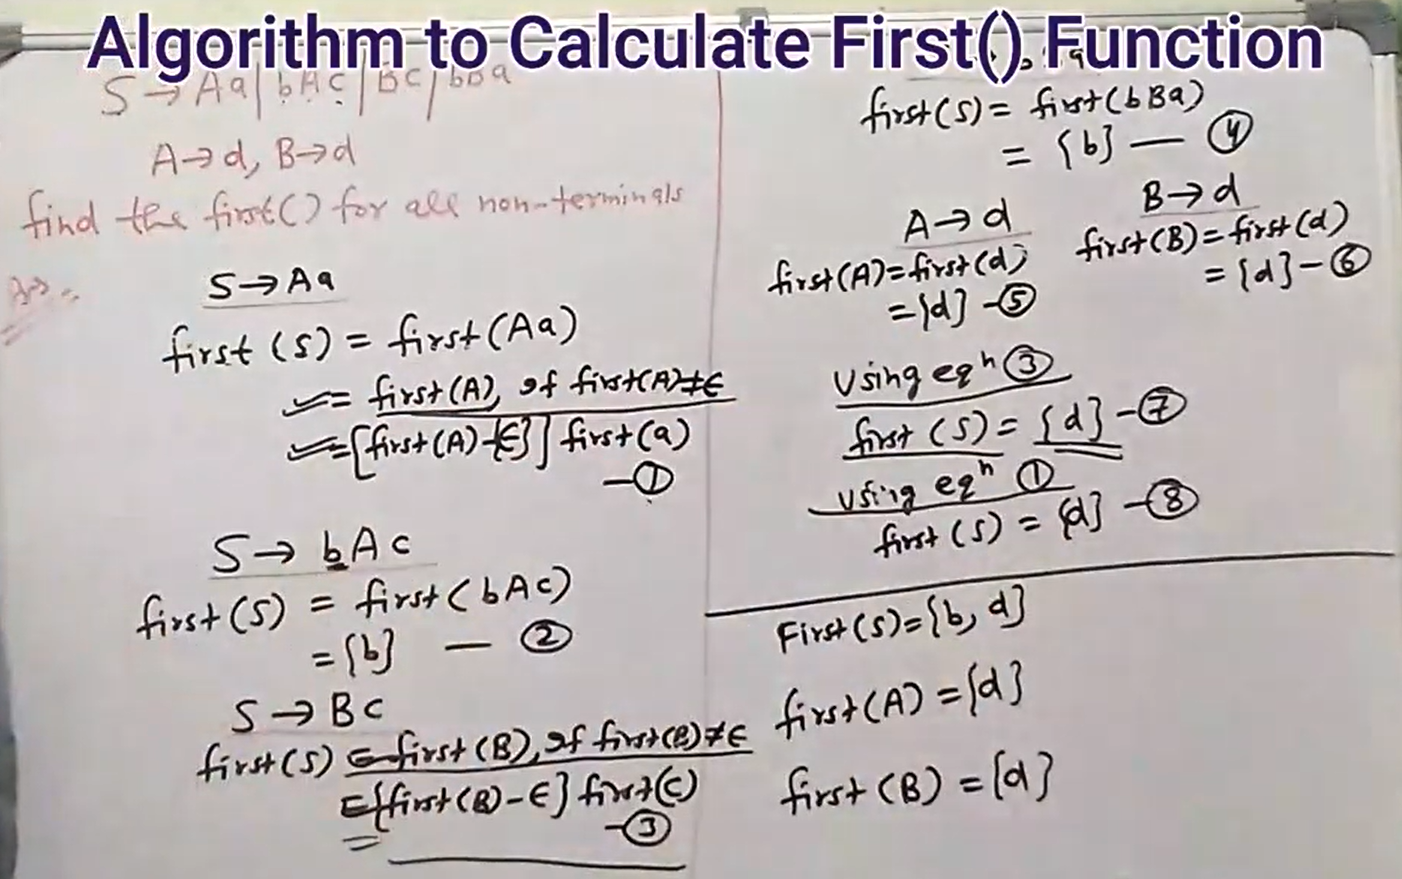 Algorithm to Calculate First() Function
S → Aa | bAc | Bc | bBa
A→d, B→d
find the first() for all non-terminals
Ans:-
S→Aa
first (S) = first(Aa)
= first(A), if first(A)≠∈
=[first(A)-{∈}] first(a)
-①
S→ bAc
first(S) = first(bAc)
={b} — ②
S→Bc
first(S) = first(B), if first(B)≠∈
=[first(B)-∈] first(c)
-③
first(S) = first(bBa)
= {b} — ④
A→d
first(A)=first(d)
={d} -⑤
B→d
first(B)=first(d)
= {d} -⑥
Using eqⁿ ③
first (S) = {d} -⑦
using eqⁿ ①
first (S) = {d} -⑧
First(S)={b, d}
first(A) ={d}
first (B) = {d}